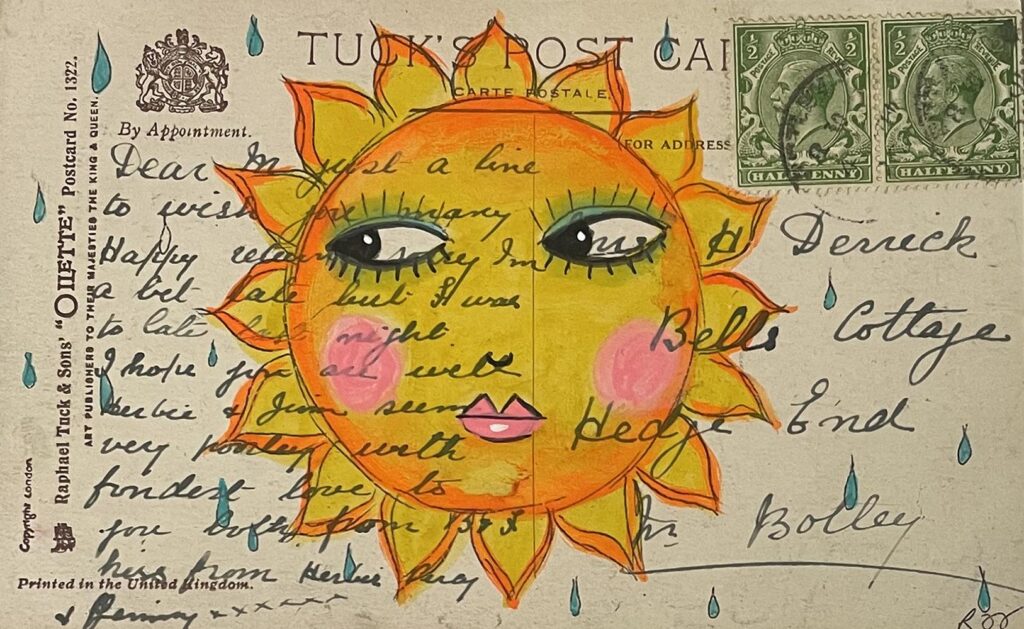 TUCK'S POST CAR
CARTE POSTALE.
FOR ADDRESS
By Appointment.
Raphael Tuck & Sons' "OILETTE" Postcard No. 1322.
ART PUBLISHERS TO THEIR MAJESTIES THE KING & QUEEN.
Copyright London
Printed in the United Kingdom.
½ ½
POSTAGE REVENUE
HALFPENNY
½ ½
POSTAGE REVENUE
HALFPENNY
Dear M just a line
to wish you many
Happy returns I'm
a bit late but I was
to late last night
I hope you are well
Herbie & Jim seem
very poorley with
fondest love to
you both from B & J
kiss from Herbie
& xxxxxx
H Derrick
Bells Cottage
Hedge End
Nr Botley